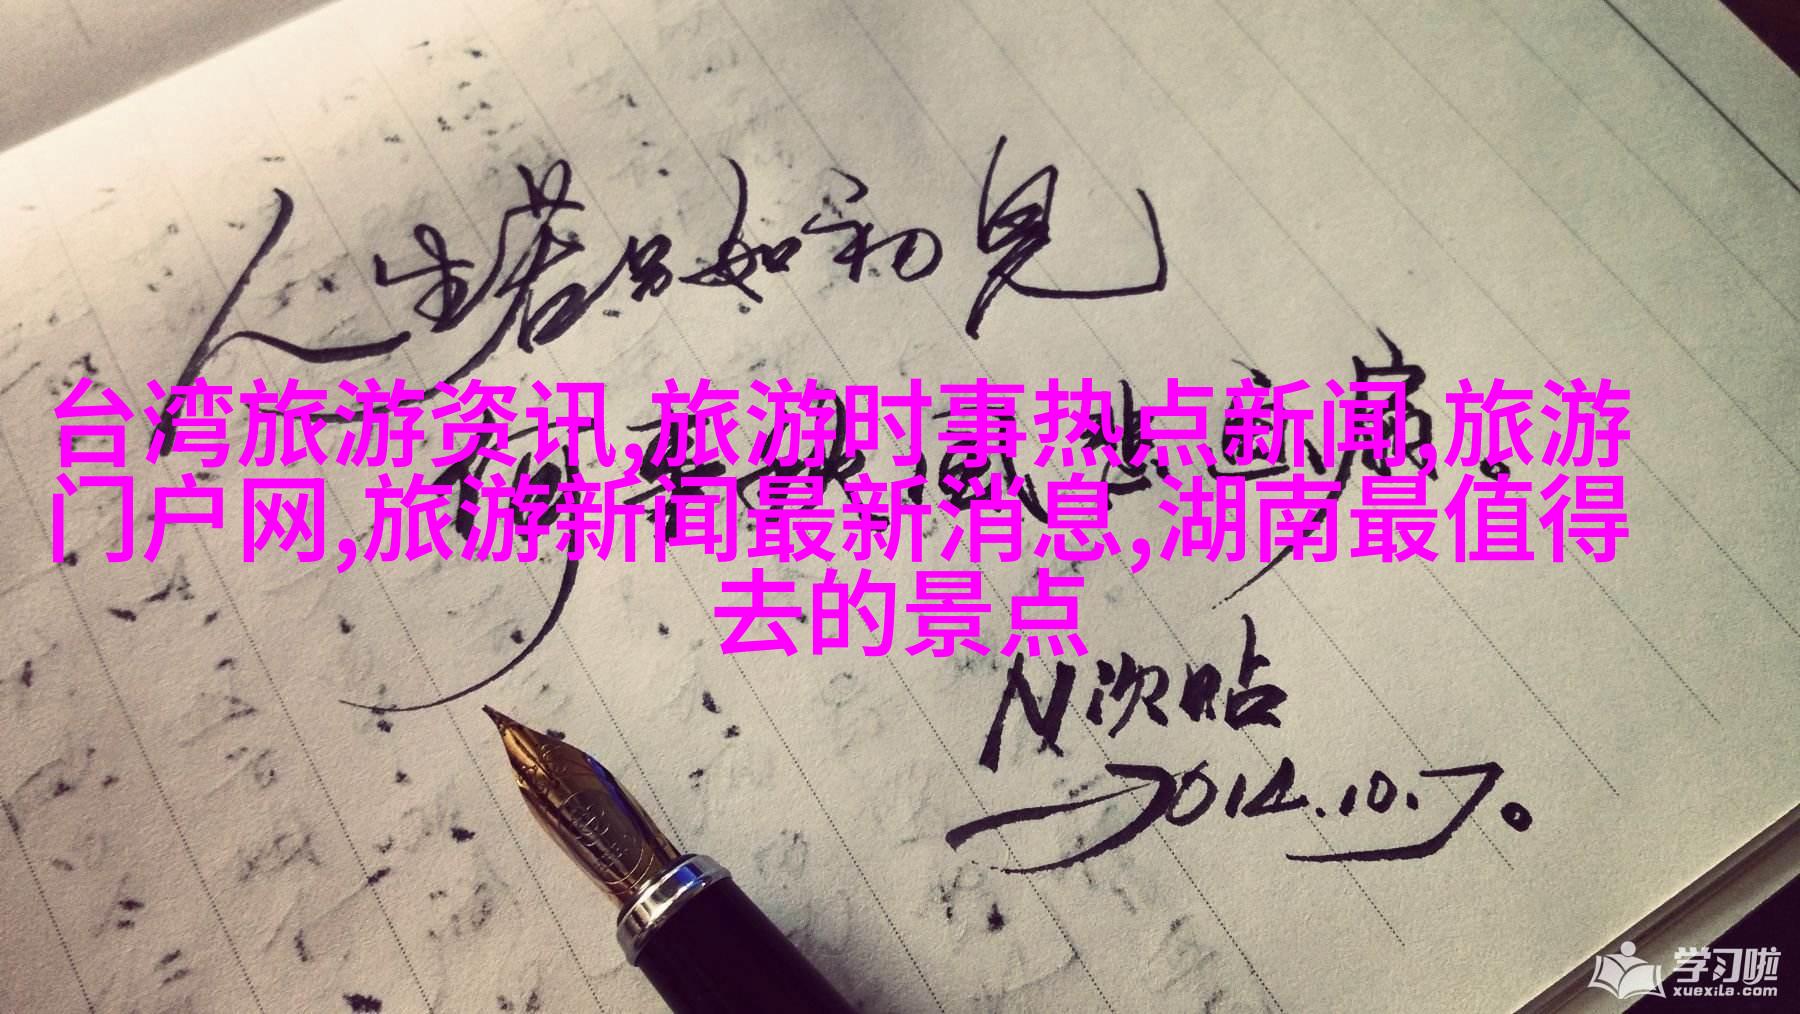 人生若只如初見
台湾旅游资讯,旅游时事热点新闻,旅游
门户网,旅游新闻最新消息,湖南最值得
去的景点
N次贴
2014.10.7。
学习啦
xuexila.com